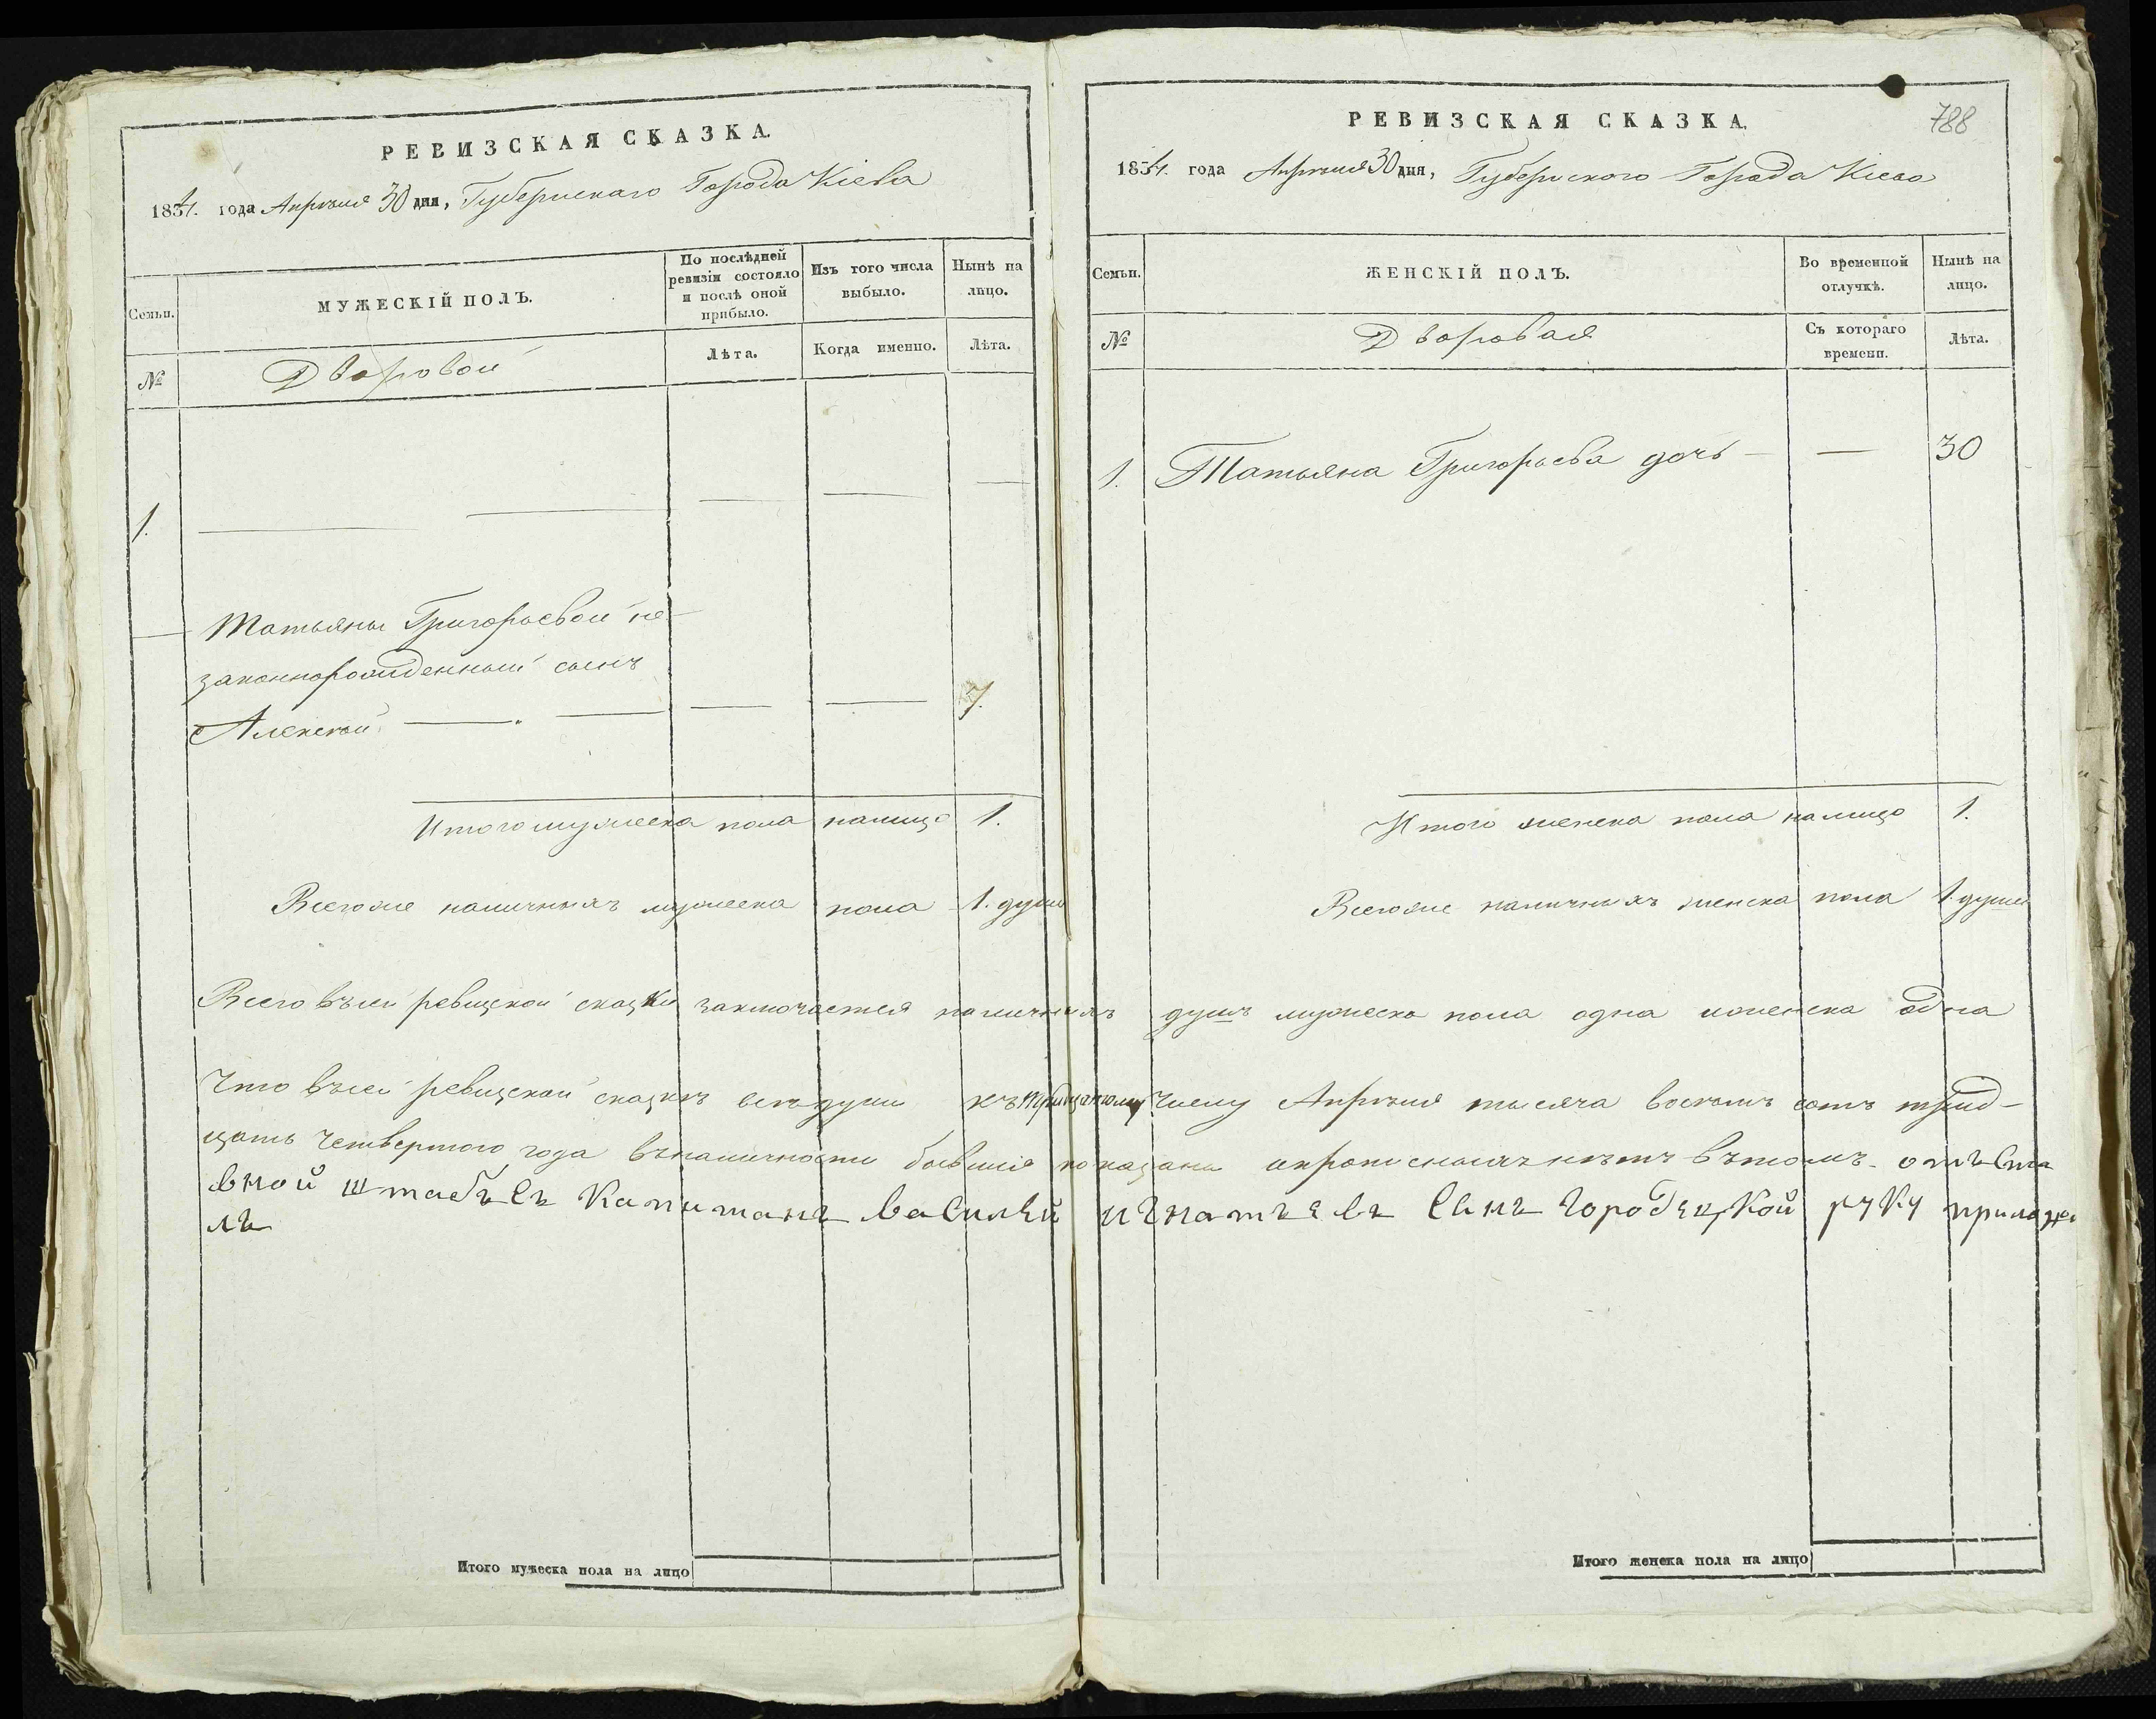 РЕВИЗСКАЯ СКАЗКА.
1834. года Апрѣля 30 дня, Губернскаго Города Кіева
Семьи.
МУЖЕСКІЙ ПОЛЪ.
По послѣдней ревизіи состояло и послѣ оной прибыло.
Изъ того числа выбыло.
Нынѣ на лицо.
№
Дворовой
Лѣта.
Когда именно.
Лѣта.
1.
Татьяны Григорьевой не-
законнорожденный сынъ
Алексѣй 7.
Итого мужеска пола налицо 1.
Всего же наличныхъ мужеска пола 1. душа
РЕВИЗСКАЯ СКАЗКА.
788
1834. года Апрѣля 30 дня, Губернского Города Кіева
Семьи.
ЖЕНСКІЙ ПОЛЪ.
Во временной отлучкѣ.
Нынѣ на лицо.
№
Дворовая
Съ котораго времени.
Лѣта.
1. Татьяна Григорьева дочь — — 30
Итого женска пола налицо 1.
Всего же наличныхъ женска пола 1 душа
Всего въ сей ревизской сказки заключается наличныхъ душъ мужеска пола одна и женска одна
Что въ сей ревизской сказкѣ всѣ души къ тридцатому числу Апрѣля тысяча восемь сотъ трид-
цать четвертого года въ наличности бывшія показаны и прописныхъ нѣтъ въ томъ. отъста
вной штабъ съ Капитанъ василей игнатъевъ сынъ городецкой руку приложи
лъ
Итого мужеска пола на лицо
Итого женска пола на лицо